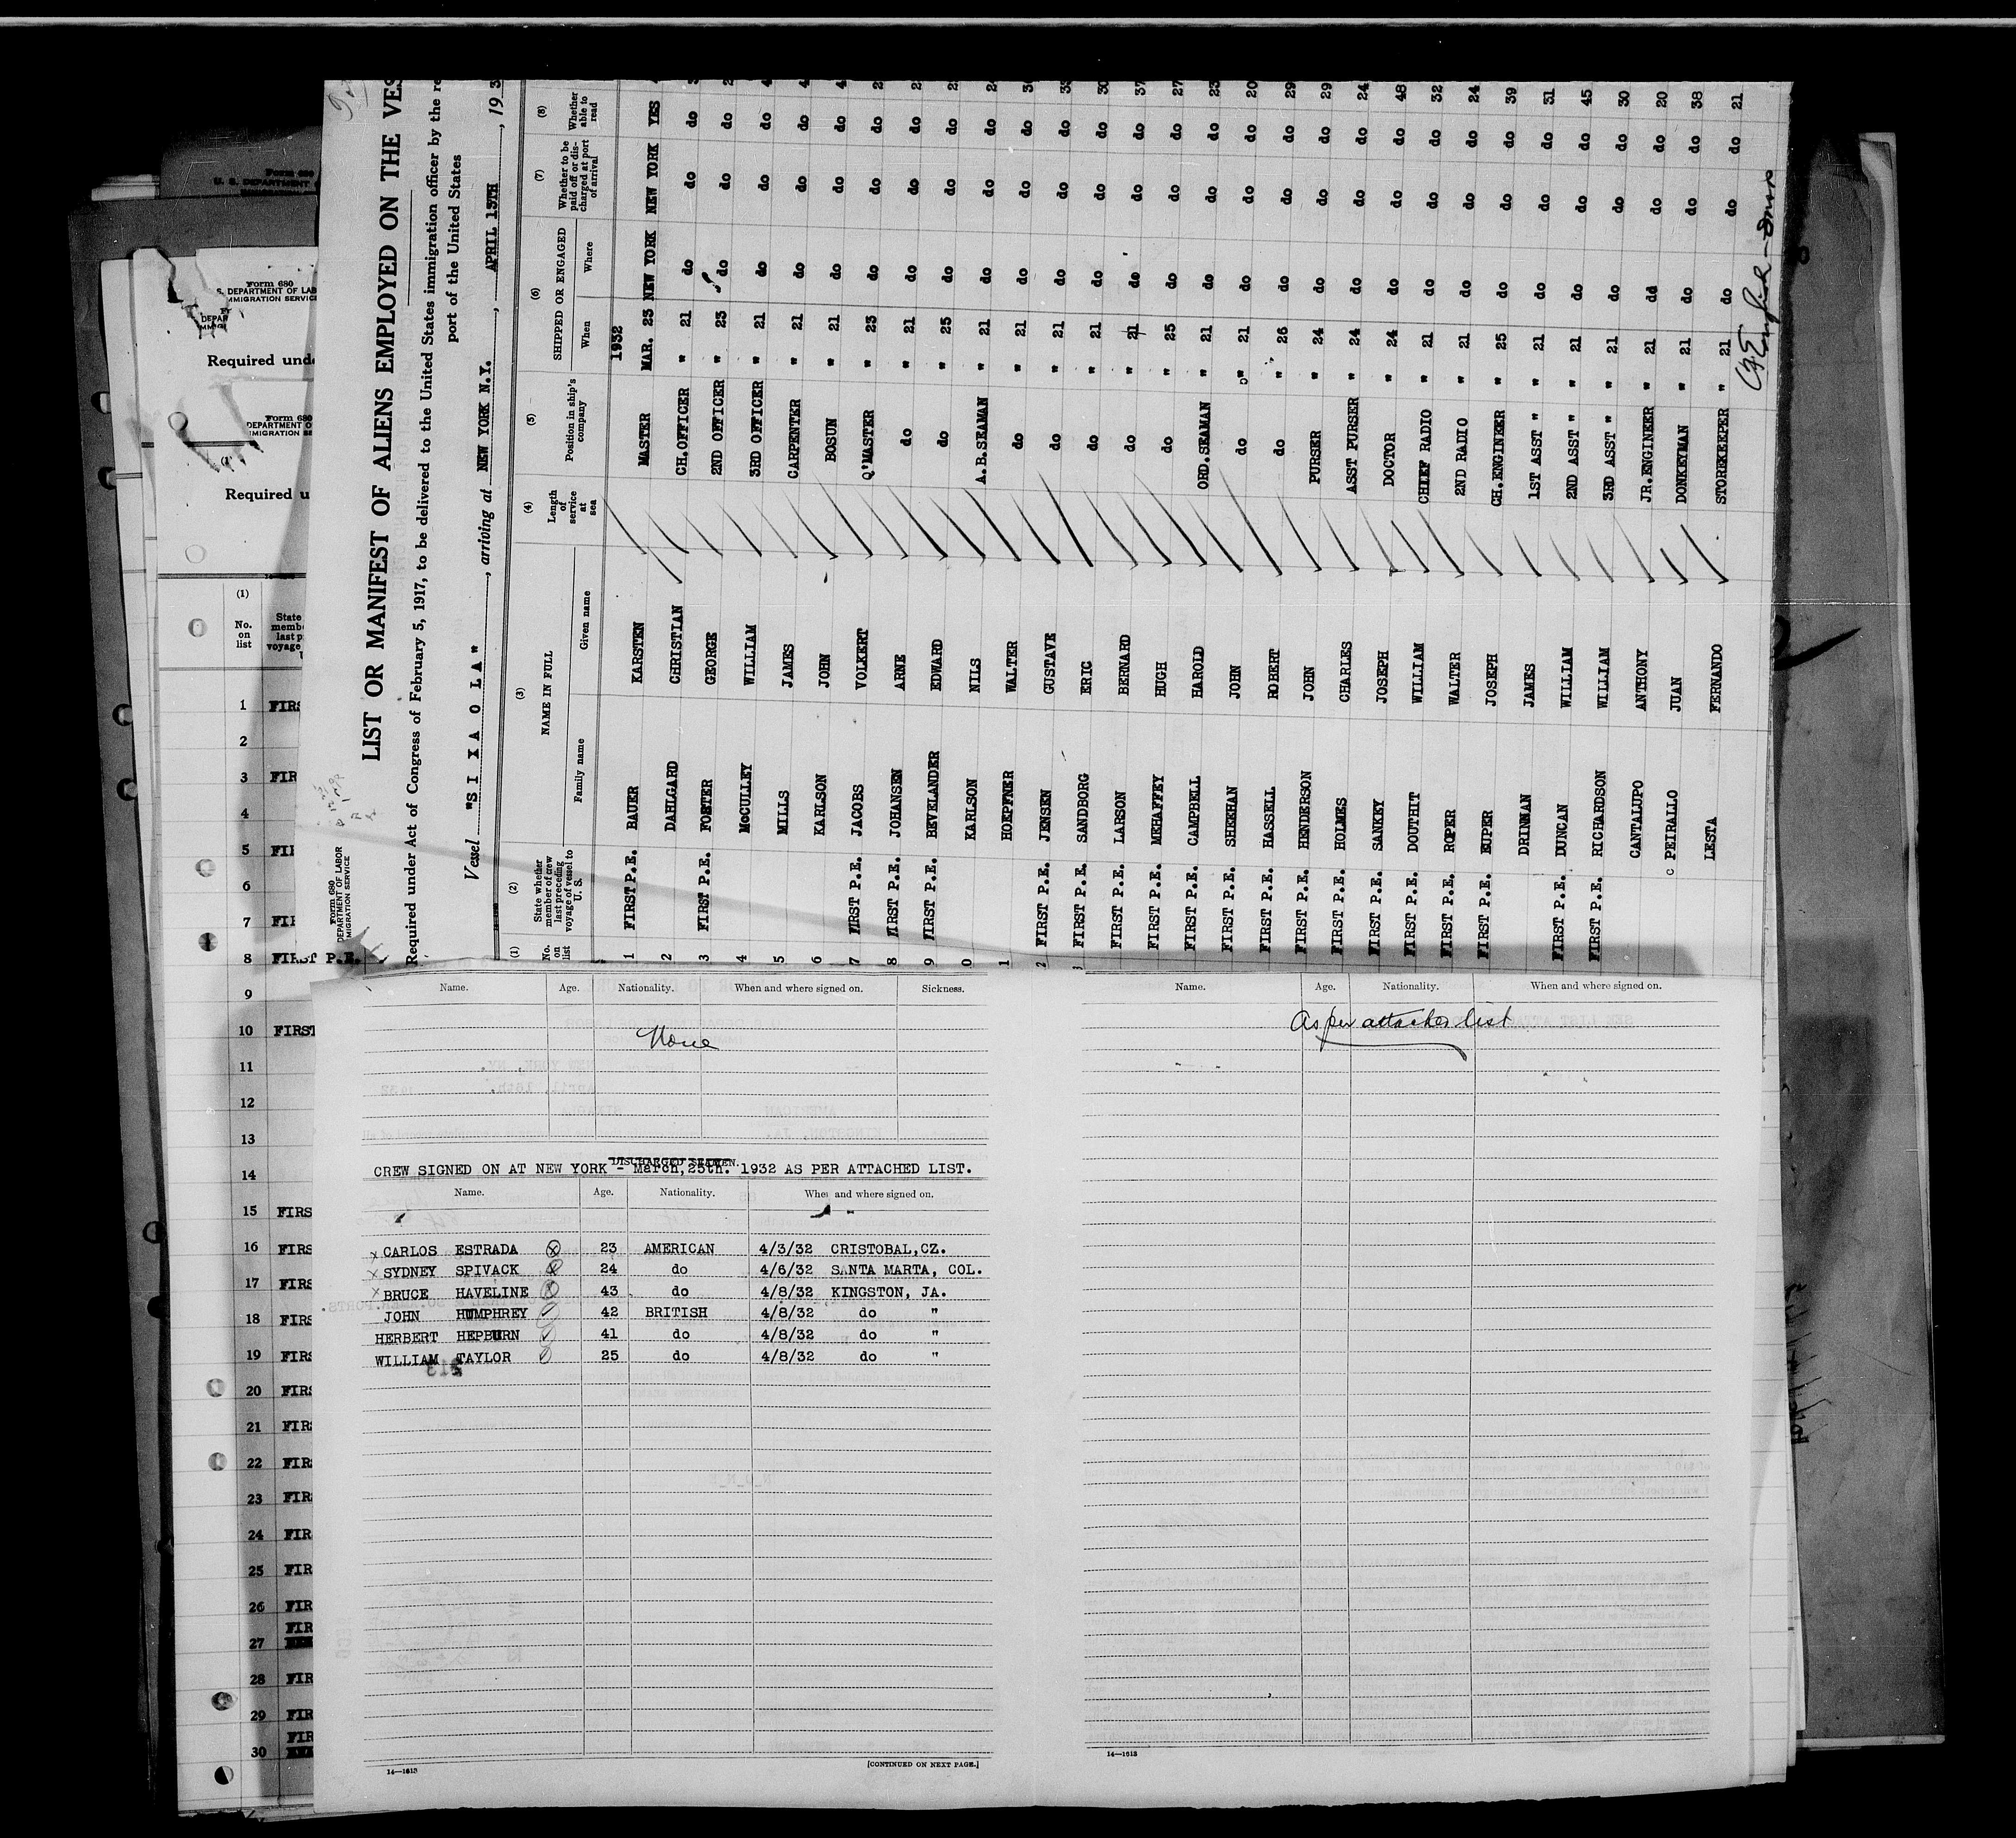 LIST OR MANIFEST OF ALIENS EMPLOYED ON THE VES
Required under Act of Congress of February 5, 1917, to be delivered to the United States immigration officer by the re
port of the United States
Vessel "S I X A O L A", arriving at NEW YORK N.Y., APRIL 13TH, 193
Form 680
DEPARTMENT OF LABOR
MIGRATION SERVICE
(1) (2) (3) (4) (5) (6) (7) (8)
No. on list State whether member of crew last preceding voyage of vessel to U. S. NAME IN FULL Length of service at sea Position in ship's company SHIPPED OR ENGAGED Whether to be paid off or discharged at port of arrival Whether able to read
Family name Given name When Where
1932
1 FIRST P.E. BAUER KARSTEN MASTER MAR. 25 NEW YORK NEW YORK YES
2 DAHLGARD CHRISTIAN CH.OFFICER " 21 do do do
3 FIRST P.E. FOSTER GEORGE 2ND OFFICER " 23 do do do
4 McCULLEY WILLIAM 3RD OFFICER " 21 do do do
5 MILLS JAMES CARPENTER " 21 do do do
6 KARLSON JOHN BOSUN " 21 do do do
7 FIRST P.E. JACOBS VOLKERT Q'MASTER " 23 do do do
8 FIRST P.E. JOHANSEN ARNE do " 21 do do do
9 FIRST P.E. BEVELANDER EDWARD do " 25 do do do
0 KARLSON NILS A.B.SEAMAN " 21 do do do
1 HOEPFNER WALTER do " 21 do do do
2 FIRST P.E. JENSEN GUSTAVE do " 21 do do do
3 FIRST P.E. SANDBORG ERIC do " 21 do do do 30
FIRST P.E. LARSON BERNARD do " 21 do do do 37
FIRST P.E. MEHAFFEY HUGH do " 25 do do do 27
FIRST P.E. CAMPBELL HAROLD ORD.SEAMAN " 21 do do do 23
FIRST P.E. SHEEHAN JOHN do " 21 do do do 20
FIRST P.E. HASSELL ROBERT do " 26 do do do 29
FIRST P.E. HENDERSON JOHN PURSER " 24 do do do 29
FIRST P.E. HOLMES CHARLES ASST PURSER " 24 do do do 24
FIRST P.E. SANKEY JOSEPH DOCTOR " 24 do do do 48
FIRST P.E. DOUTHIT WILLIAM CHIEF RADIO " 21 do do do 32
FIRST P.E. ROPER WALTER 2ND RADIO " 21 do do do 24
FIRST P.E. EUPER JOSEPH CH.ENGINEER " 25 do do do 39
DRINNAN JAMES 1ST ASST " " 21 do do do 31
FIRST P.E. DUNCAN WILLIAM 2ND ASST " " 21 do do do 45
FIRST P.E. RICHARDSON WILLIAM 3RD ASST " " 21 do do do 30
CANTALUPO ANTHONY JR.ENGINEER " 21 do do do 20
PEIRALLO JUAN DONKEYMAN " 21 do do do 38
LESTA FERNANDO STOREKEEPER " 21 do do do 21
Form 680
U. S. DEPARTMENT
Form 680
S. DEPARTMENT OF LAB
MMIGRATION SERVICE
Required unde
Form 680
DEPARTMENT O
MIGRATION SE
Required u
(1)
No. on list
State
membe
last p
voyage
1 FIRS
2
3 FIR
4
5 FII
6
7 FII
8 FIRST P.E.
9
10 FIRST
11
12
13
14
15 FIRS
16 FIRS
17 FIRS
18 FIRS
19 FIRS
20 FIRS
21 FIRS
22 FIRS
23 FIRS
24 FIR
25 FIR
26 FIR
FIR
27
28 FIR
29 FIR
FIR
30
Name. Age. Nationality. When and where signed on. Sickness.
None
DISCHARGED SEAMEN.
CREW SIGNED ON AT NEW YORK - March,25th. 1932 AS PER ATTACHED LIST.
Name. Age. Nationality. When and where signed on.
x CARLOS ESTRADA 23 AMERICAN 4/3/32 CRISTOBAL,CZ.
x SYDNEY SPIVACK 24 do 4/6/32 SANTA MARTA, COL.
x BRUCE HAVELINE 43 do 4/8/32 KINGSTON, JA.
JOHN HUMPHREY 42 BRITISH 4/8/32 do "
HERBERT HEPBURN 41 do 4/8/32 do "
WILLIAM TAYLOR 25 do 4/8/32 do "
14—1613
[CONTINUED ON NEXT PAGE.]
Name. Age. Nationality. When and where signed on.
As per attached list
14—1613